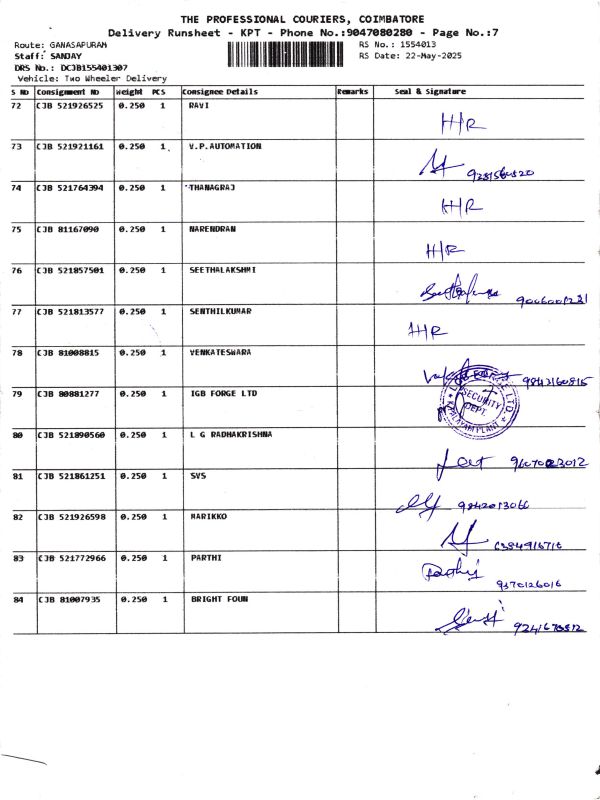 THE PROFESSIONAL COURIERS, COIMBATORE
Delivery Runsheet - KPT - Phone No.:9047080280 - Page No.:7
Route: GANASAPURAM
RS No.: 1554013
Staff: SANJAY
RS Date: 22-May-2025
DRS No.: DCJB155401307
Vehicle: Two Wheeler Delivery
S No Consignment No Weight PCS Consignee Details Remarks Seal & Signature
72 CJB 521926525 0.250 1 RAVI H/R
73 CJB 521921161 0.250 1 V.P.AUTOMATION
74 CJB 521764394 0.250 1 THANAGRAJ H/R
75 CJB 81167090 0.250 1 NARENDRAN H/R
76 CJB 521857501 0.250 1 SEETHALAKSHMI
77 CJB 521813577 0.250 1 SENTHILKUMAR H/R
78 CJB 81008815 0.250 1 VENKATESWARA 9843160815
79 CJB 80881277 0.250 1 IGB FORGE LTD SECURITY DEPT.
80 CJB 521890560 0.250 1 L G RADHAKRISHNA
81 CJB 521861251 0.250 1 SVS 9842013066
82 CJB 521926598 0.250 1 MARIKKO
83 CJB 521772966 0.250 1 PARTHI Parthi 9370126016
84 CJB 81007935 0.250 1 BRIGHT FOUN